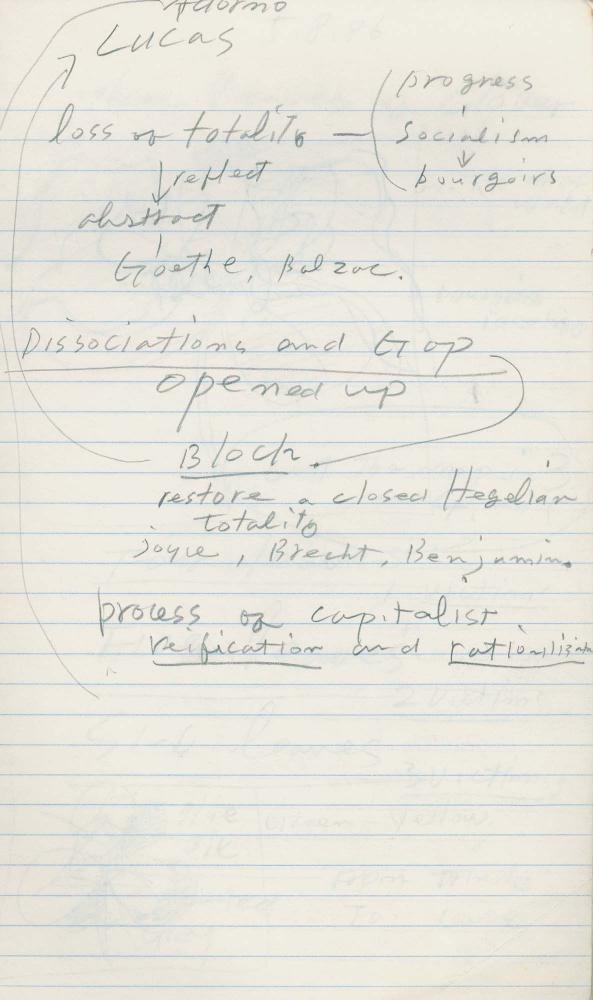 Adorno
Lucas
progress
loss of totality — socialism
reflect
bourgoirs
abstract
Goethe, Balzac.
Dissociations and Gap
opened up
Bloch.
restore a closed Hegelian
totality
joyce, Brecht, Benjamin.
process of capitalist
reification and